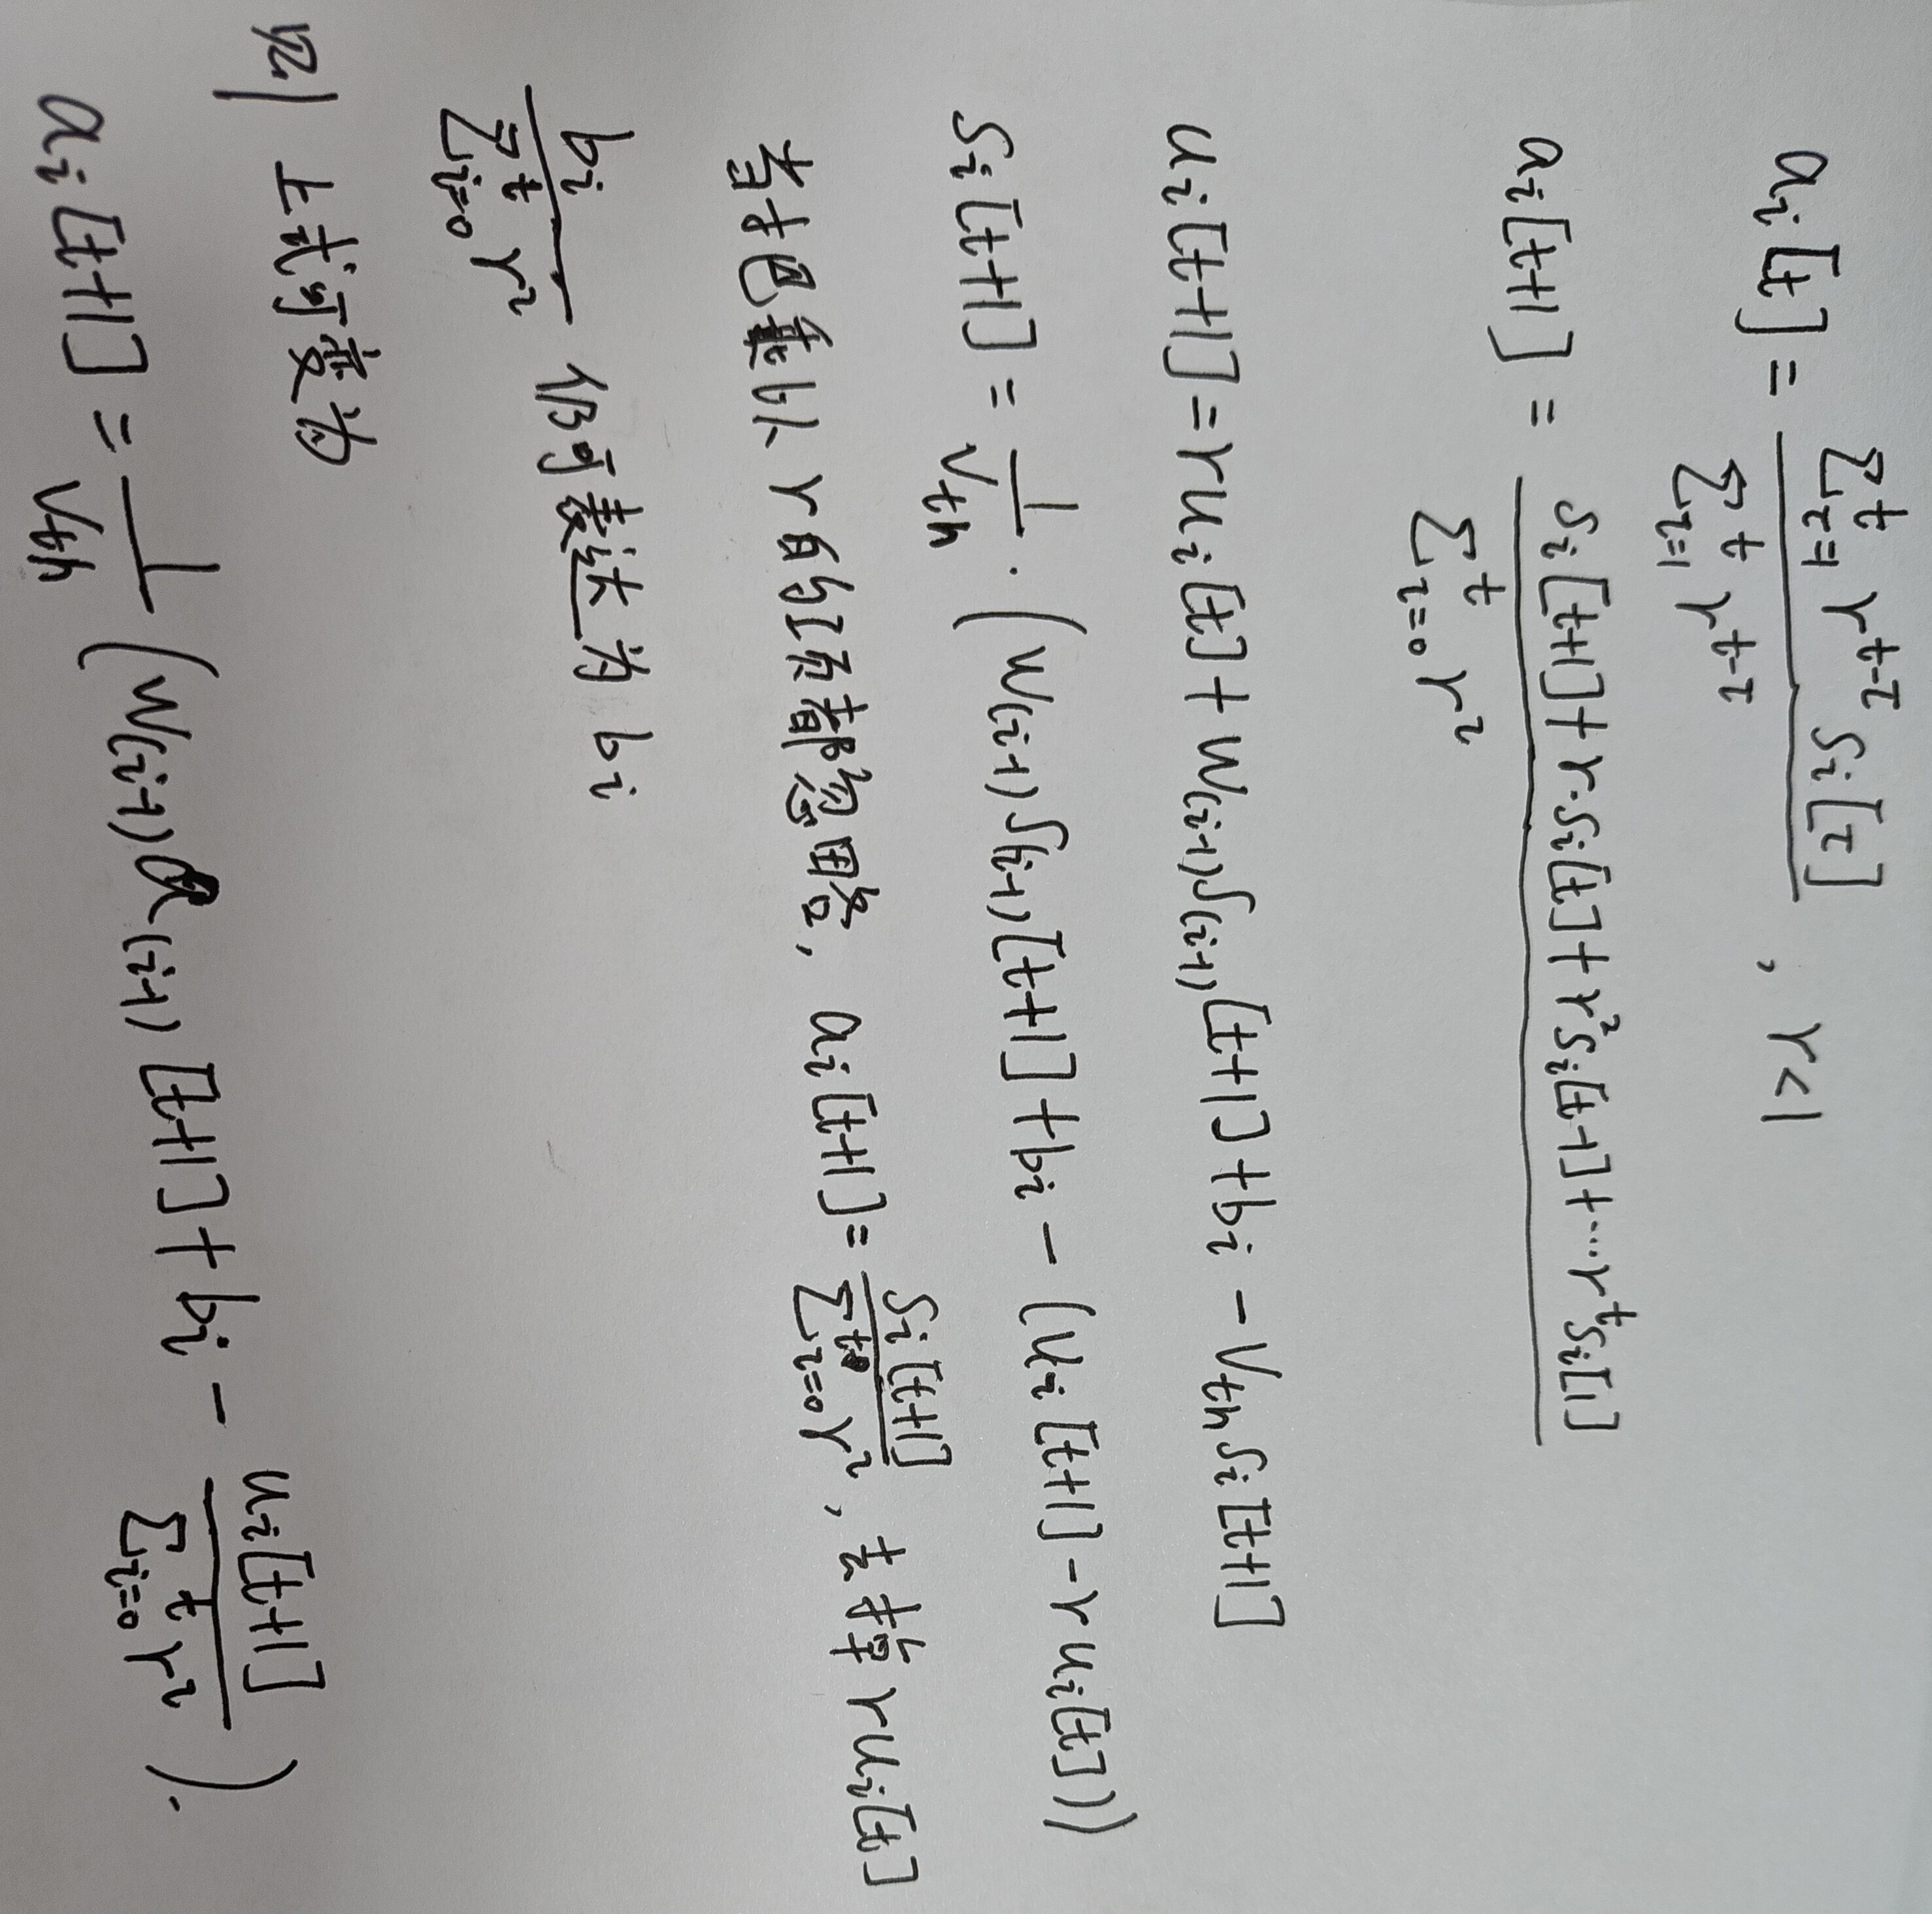 a_i[t] = \frac{\sum_{τ=1}^{t} r^{t-τ} s_i[τ]}{\sum_{τ=1}^{t} r^{t-τ}} , r<1
a_i[t+1] = \frac{s_i[t+1]+r·s_i[t]+r^2 s_i[t-1]+···r^t s_i[1]}{\sum_{τ=0}^{t} r^τ}
u_i[t+1]=ru_i[t]+W_{(i-1)}s_{(i-1)}[t+1]+b_i-V_{th}s_i[t+1]
s_i[t+1] = \frac{1}{V_{th}}·(W_{(i-1)}s_{(i-1)}[t+1]+b_i-(u_i[t+1]-ru_i[t]))
当把乘以r的项都忽略, a_i[t+1]=\frac{s_i[t+1]}{\sum_{τ=0}^{t} r^τ}, 去掉ru_i[t]
\frac{b_i}{\sum_{i=0}^{t} r^τ} 仍可表达为 b_i
则 上式可变为
a_i[t+1] = \frac{1}{V_{th}}(W_{(i-1)}a_{(i-1)}[t+1]+b_i-\frac{u_i[t+1]}{\sum_{i=0}^{t} r^τ}).